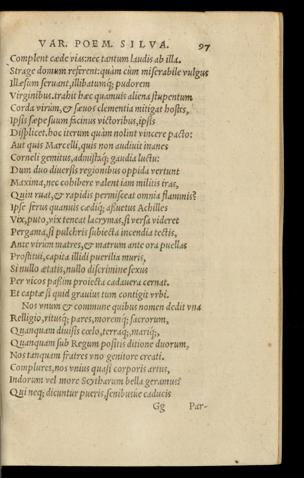 VAR. POEM. SILVA. 97
Complent cæde vias: nec tantum laudis ab illa.
Strage domum referent: quàm cùm miserabile vulgus
Illæsum seruant, illibatumq; pudorem
Virginibus. trahit hæc quamuis aliena stupentum
Corda virûm, & sæuos clementia mitigat hostes,
Ipsis sæpe suum facinus victoribus, ipsis
Displicet. hoc iterum quàm nolint vincere pacto:
Aut quis Marcelli, quis non audiuit inanes
Corneli gemitus, admistáq; gaudia luctu:
Dum duo diuersis regionibus oppida vertunt
Maxima, nec cohibere valent iam militis iras,
Quin ruat, & rapidis permisceat omnia flammis?
Ipse ferus quamuis cædiq; assuetus Achilles
Vix, puto, vix teneat lacrymas, si versa videret
Pergama, si pulchris subiecta incendia tectis,
Ante virûm matres, & matrum ante ora puellas
Prostitui, capita illidi puerilia muris,
Si nullo ætatis, nullo discrimine sexus
Per vicos passim proiecta cadauera cernat.
Et captæ si quid grauius tum contigit vrbi.
Nos vnum & commune quibus nomen dedit vna
Relligio, ritusq; pares, moremq; sacrorum,
Quanquam diuisis cœlo, terraq;, mariq;,
Quanquam sub Regum positis ditione duorum,
Nos tanquam fratres vno genitore creati.
Complures, nos vnius quasi corporis artus,
Indorum vel more Scytharum bella geramus?
Qui neq; dicuntur pueris, senibusue caducis
Gg Par-